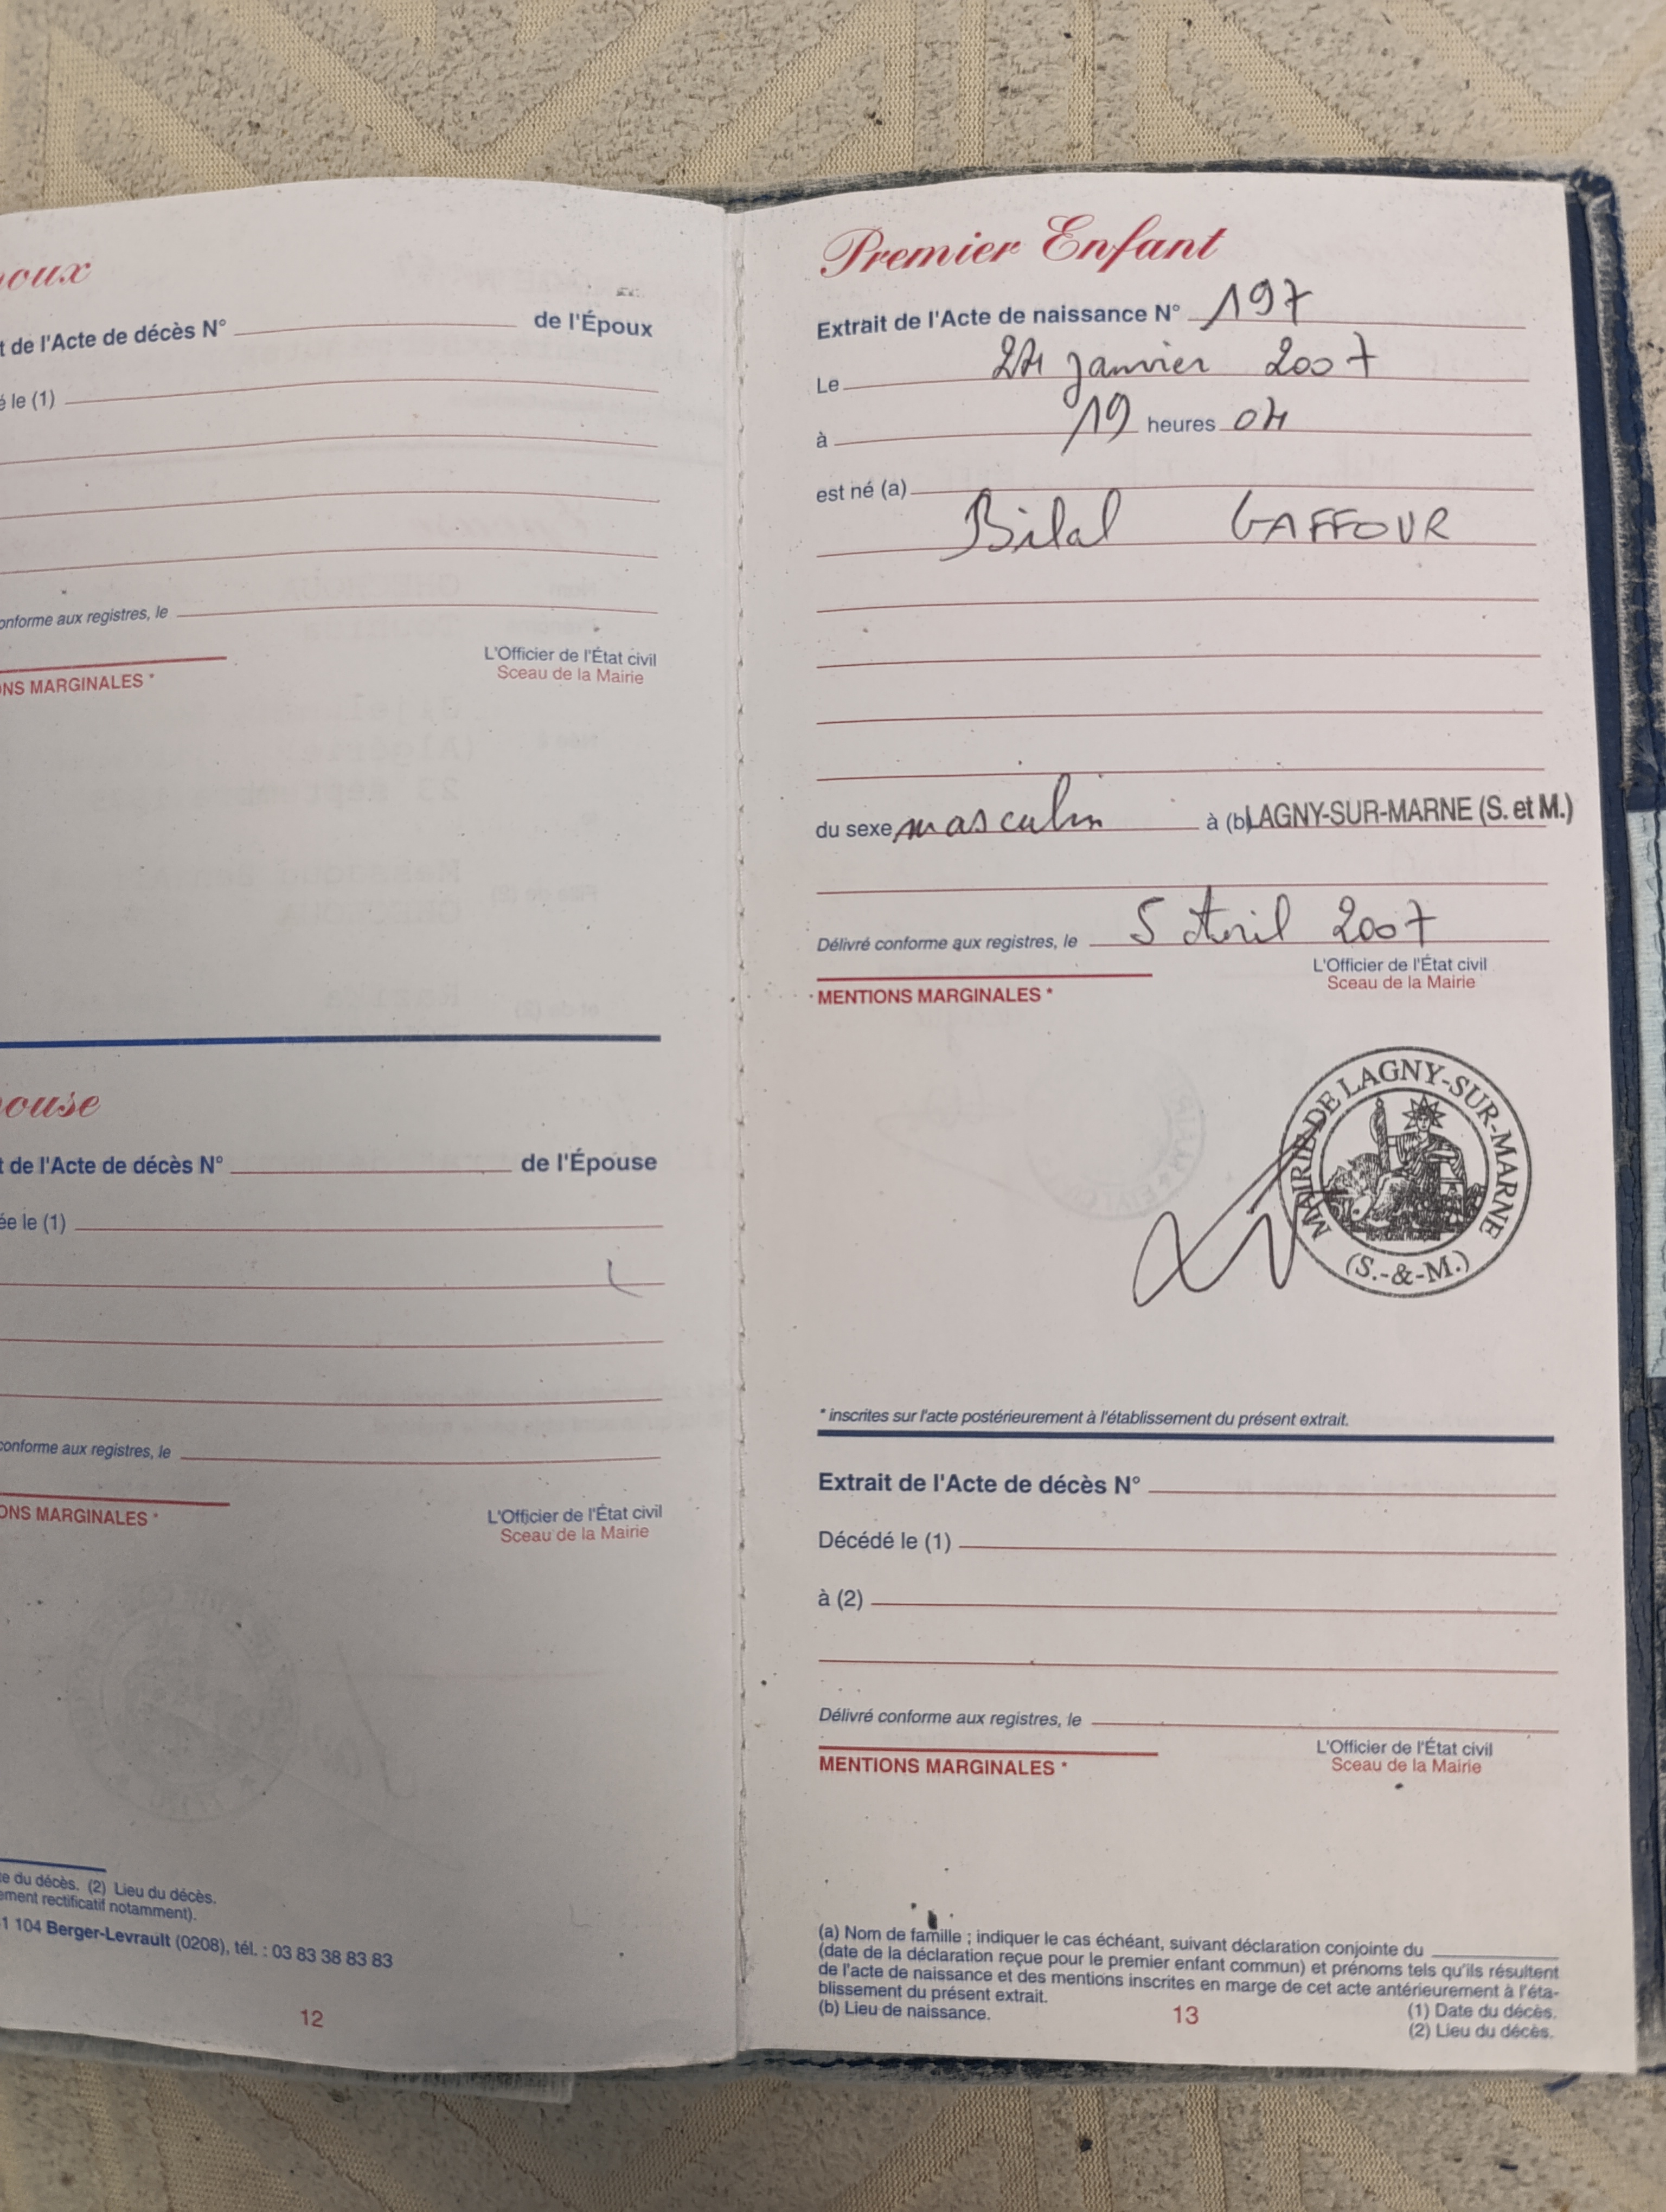 oux
t de l'Acte de décès N° de l'Époux
é le (1)
onforme aux registres, le
L'Officier de l'État civil
Sceau de la Mairie
NS MARGINALES *
ouse
t de l'Acte de décès N° de l'Épouse
ée le (1)
conforme aux registres, le
ONS MARGINALES *
L'Officier de l'État civil
Sceau de la Mairie
e du décès. (2) Lieu du décès.
ement rectificatif notamment).
1 104 Berger-Levrault (0208), tél. : 03 83 38 83 83
12
Premier Enfant
Extrait de l'Acte de naissance N° 197
Le 24 janvier 2007
à 19 heures 04
est né (a)
Bilal GAFFOUR
du sexe masculin à (b) LAGNY-SUR-MARNE (S. et M.)
Délivré conforme aux registres, le 5 Avril 2007
L'Officier de l'État civil
Sceau de la Mairie
MENTIONS MARGINALES *
MAIRIE DE LAGNY-SUR-MARNE
(S.-&-M.)
* inscrites sur l'acte postérieurement à l'établissement du présent extrait.
Extrait de l'Acte de décès N°
Décédé le (1)
à (2)
Délivré conforme aux registres, le
L'Officier de l'État civil
Sceau de la Mairie
MENTIONS MARGINALES *
(a) Nom de famille ; indiquer le cas échéant, suivant déclaration conjointe du
(date de la déclaration reçue pour le premier enfant commun) et prénoms tels qu'ils résultent
de l'acte de naissance et des mentions inscrites en marge de cet acte antérieurement à l'éta-
blissement du présent extrait.
(b) Lieu de naissance.
13
(1) Date du décès.
(2) Lieu du décès.